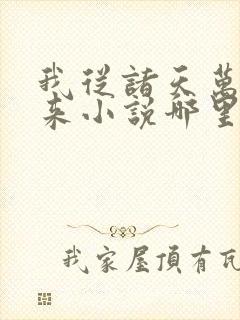 我從諸天萬
来小說哪里
我家屋頂有瓦